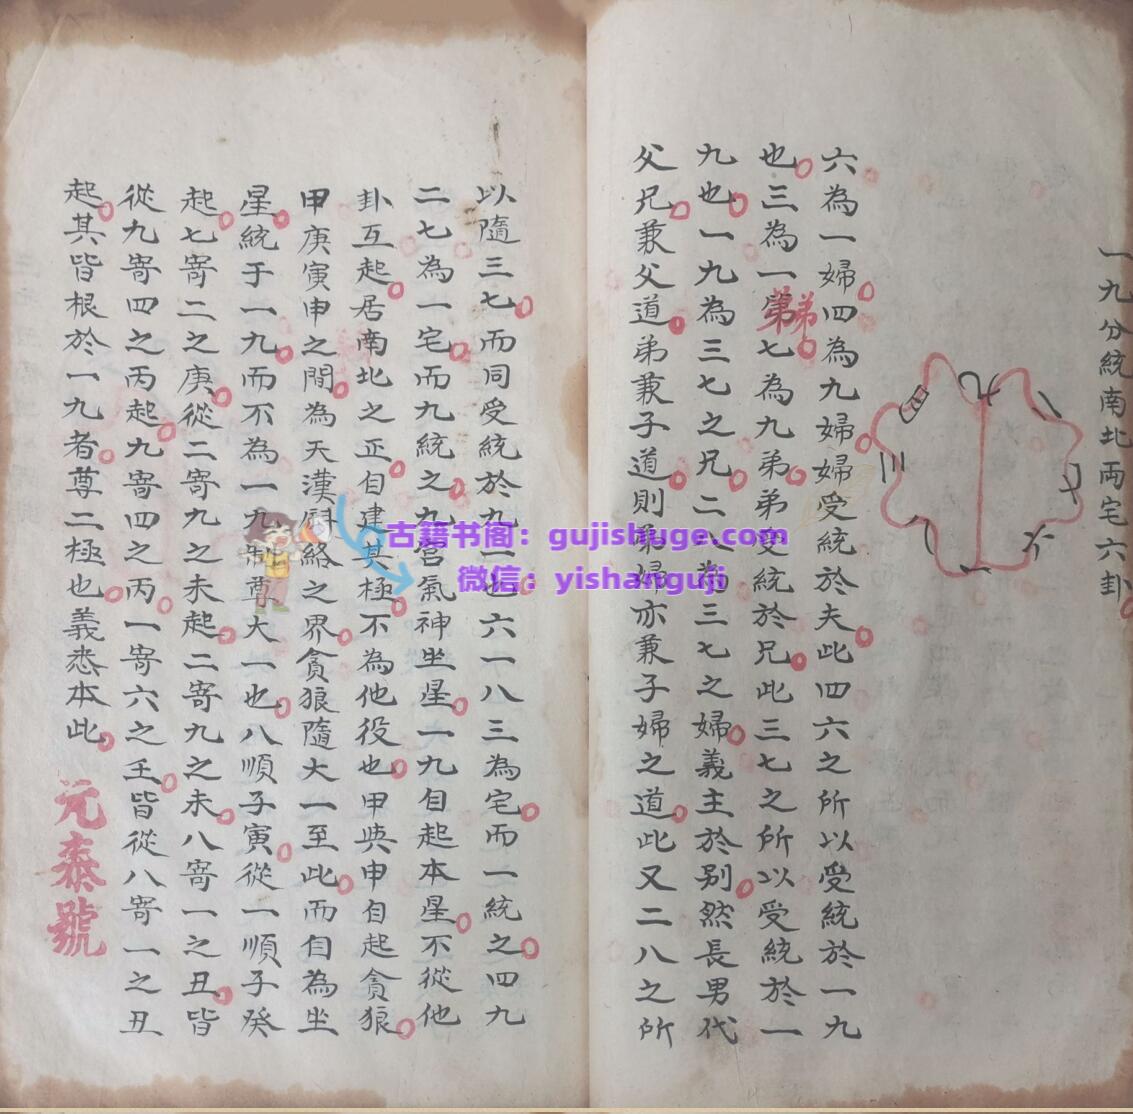 一九分統南北兩宅六卦
六為一婦四為九婦婦受統於夫此四六之所以受統於一九
也三為一弟七為九弟弟受統於兄此三七之所以受統於一
弟
九也一九為三七之兄二八為三七之婦義主於別然長男代
父兄兼父道弟兼子道則弟婦亦兼子婦之道此又二八之所
以隨三七而同受統於九一也六一八三為宅而一統之四九
二七為一宅而九統之九宮氣神坐星一九自起本星不從他
卦互起居南北之正自建其極不為他役也甲與申自起貪狼
甲庚寅申之間為天漢絡之界貪狼隨大一至此而自為坐
星統于一九而不為一九制尊大一也八順子寅從一順子癸
起七寄二之庚從二寄九之未起二寄九之未八寄一之丑皆
從九寄四之丙起九寄四之丙一寄六之壬皆從八寄一之丑
起其皆根於一九者尊二極也義悉本此
元泰號
古籍书阁：gujishuge.com
微信：yishanguji